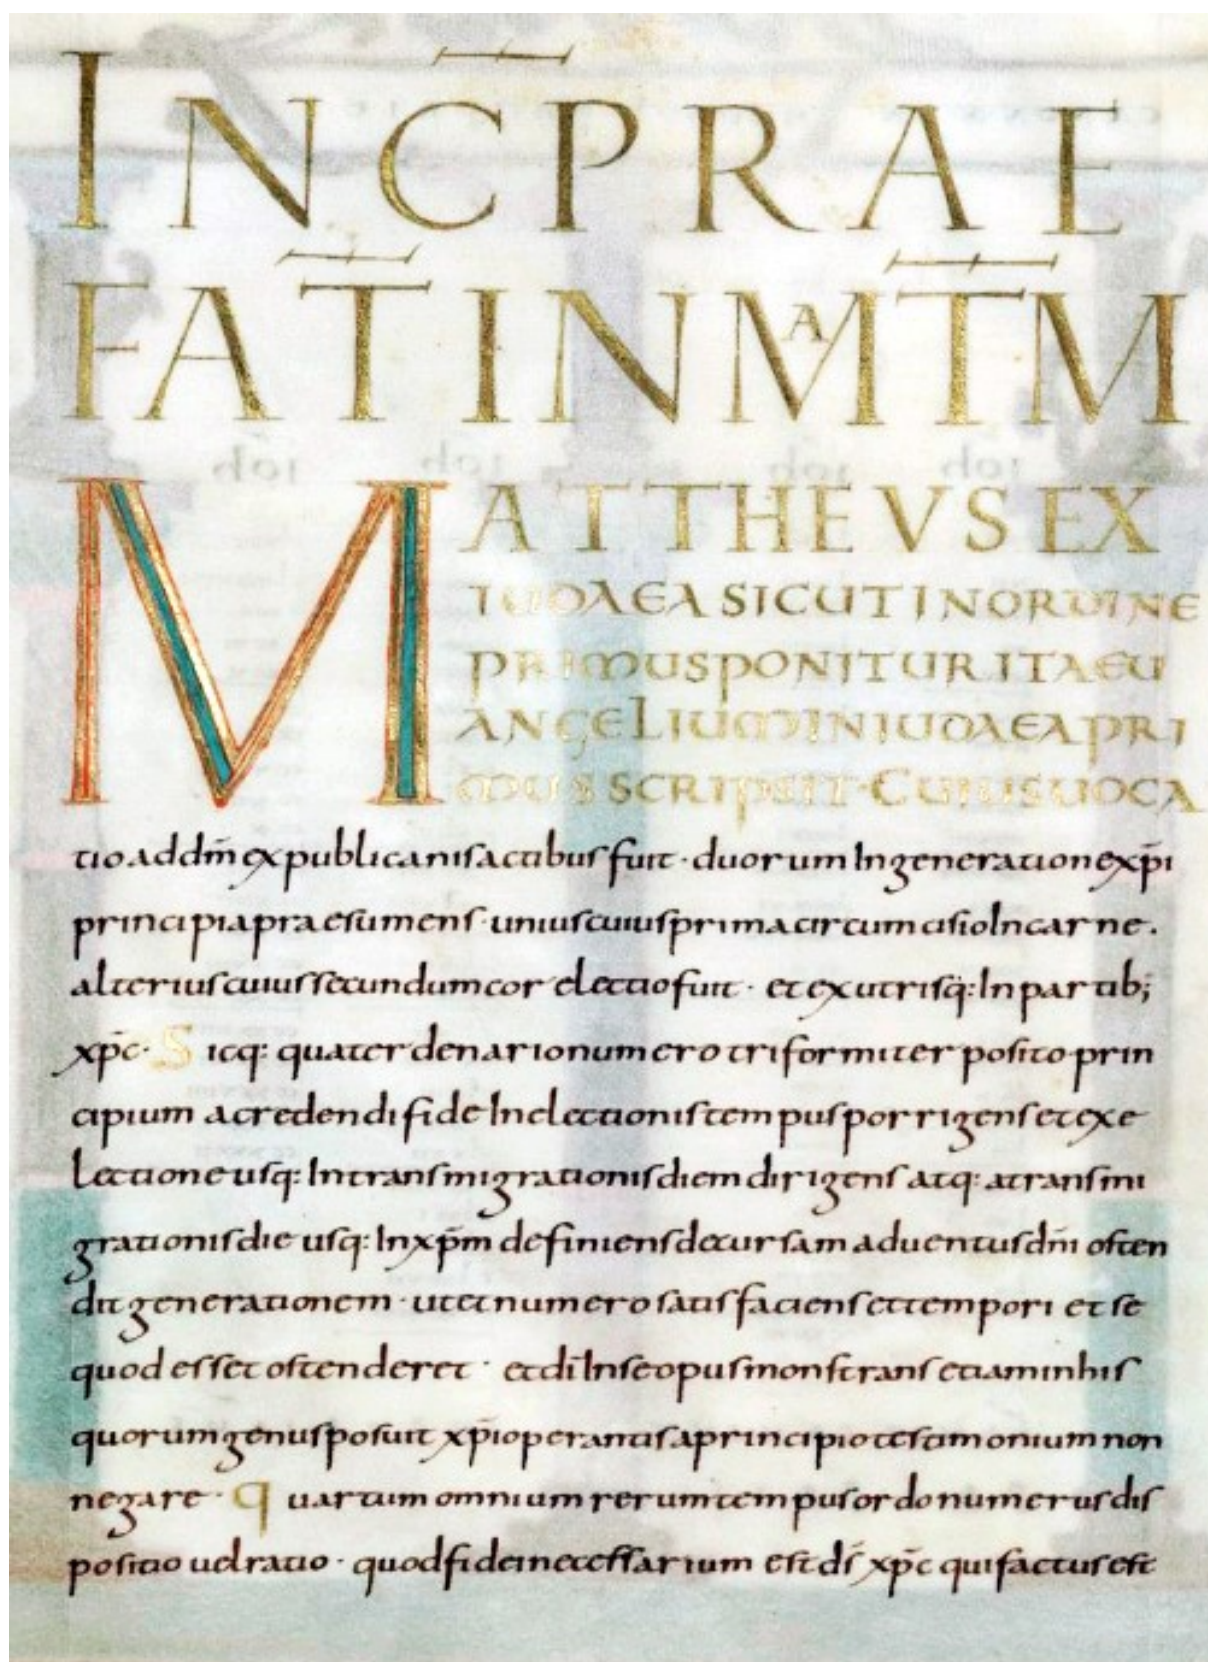 INC̅PRAE
FAT̅INMAT̅M
MATTHEVSEX
IUDAEA SICUT IN ORDINE
PRIMUS PONITUR ITA EU
ANGELIUM IN IUDAEA PRI
MUS SCRIPSIT · CUIUS UOCA
tio ad dm̅ ex publicanis actibus fuit · duorum In generatione xp̅i
principia praesumens · unius cuius prima circumcisio In carne .
alterius cuius secundum cor electio fuit · et ex utrisq: In partib;
xp̅c · Sicq: quaterdenario numero triformiter posito prin
cipium a credendi fide In electionis tempus porrigens et ex e
lectione usq: In transmigrationis diem dirigens atq: a transmi
grationis die usq: In xp̅m definiens decursam aduentus dn̅i osten
dit generationem · ut et numero satisfaciens et tempori et se
quod esset ostenderet · et di̅ In se opus monstrans etiam in his
quorum genus posuit xp̅i operantis a principio testimonium non
negare · Quartum omnium rerum tempus ordo numerus dis
positio uel ratio · quod fidei necessarium est ds̅ xp̅c qui factus est